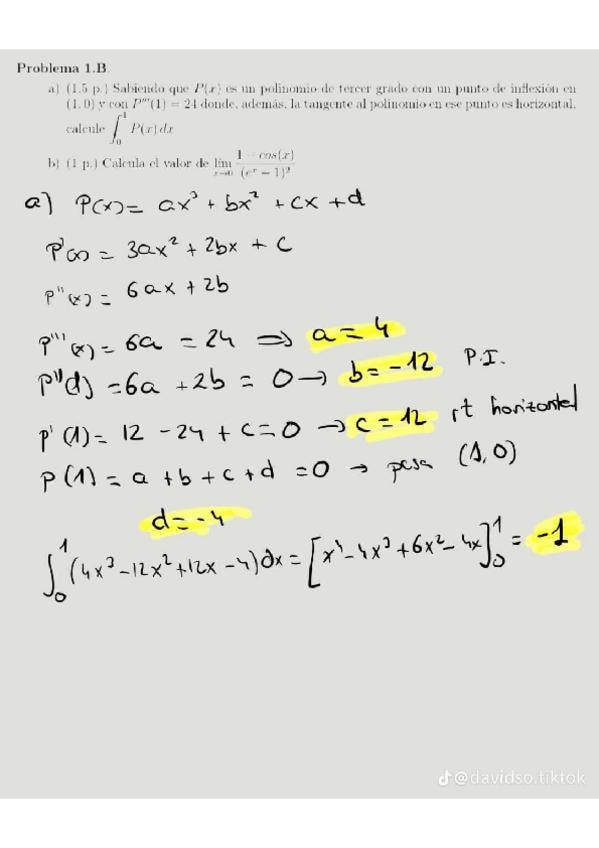 Problema 1.B.
a) (1.5 p.) Sabiendo que P(x) es un polinomio de tercer grado con un punto de inflexión en
(1, 0) y con P'''(1) = 24 donde, además, la tangente al polinomio en ese punto es horizontal,
calcule ∫₀¹ P(x) dx
b) (1 p.) Calcula el valor de lím x→0 (1 − cos(x))/(eˣ − 1)²
a) P(x) = ax³ + bx² + cx + d
P'(x) = 3ax² + 2bx + c
P''(x) = 6ax + 2b
P'''(x) = 6a = 24 ⇒ a = 4
P''(1) = 6a + 2b = 0 → b = -12 P.I.
P'(1) = 12 - 24 + c = 0 → c = 12 rt horizontal
P(1) = a + b + c + d = 0 → pasa (1, 0)
d = -4
∫₀¹ (4x³ - 12x² + 12x - 4) dx = [x⁴ - 4x³ + 6x² - 4x]₀¹ = -1
@davidso.tiktok